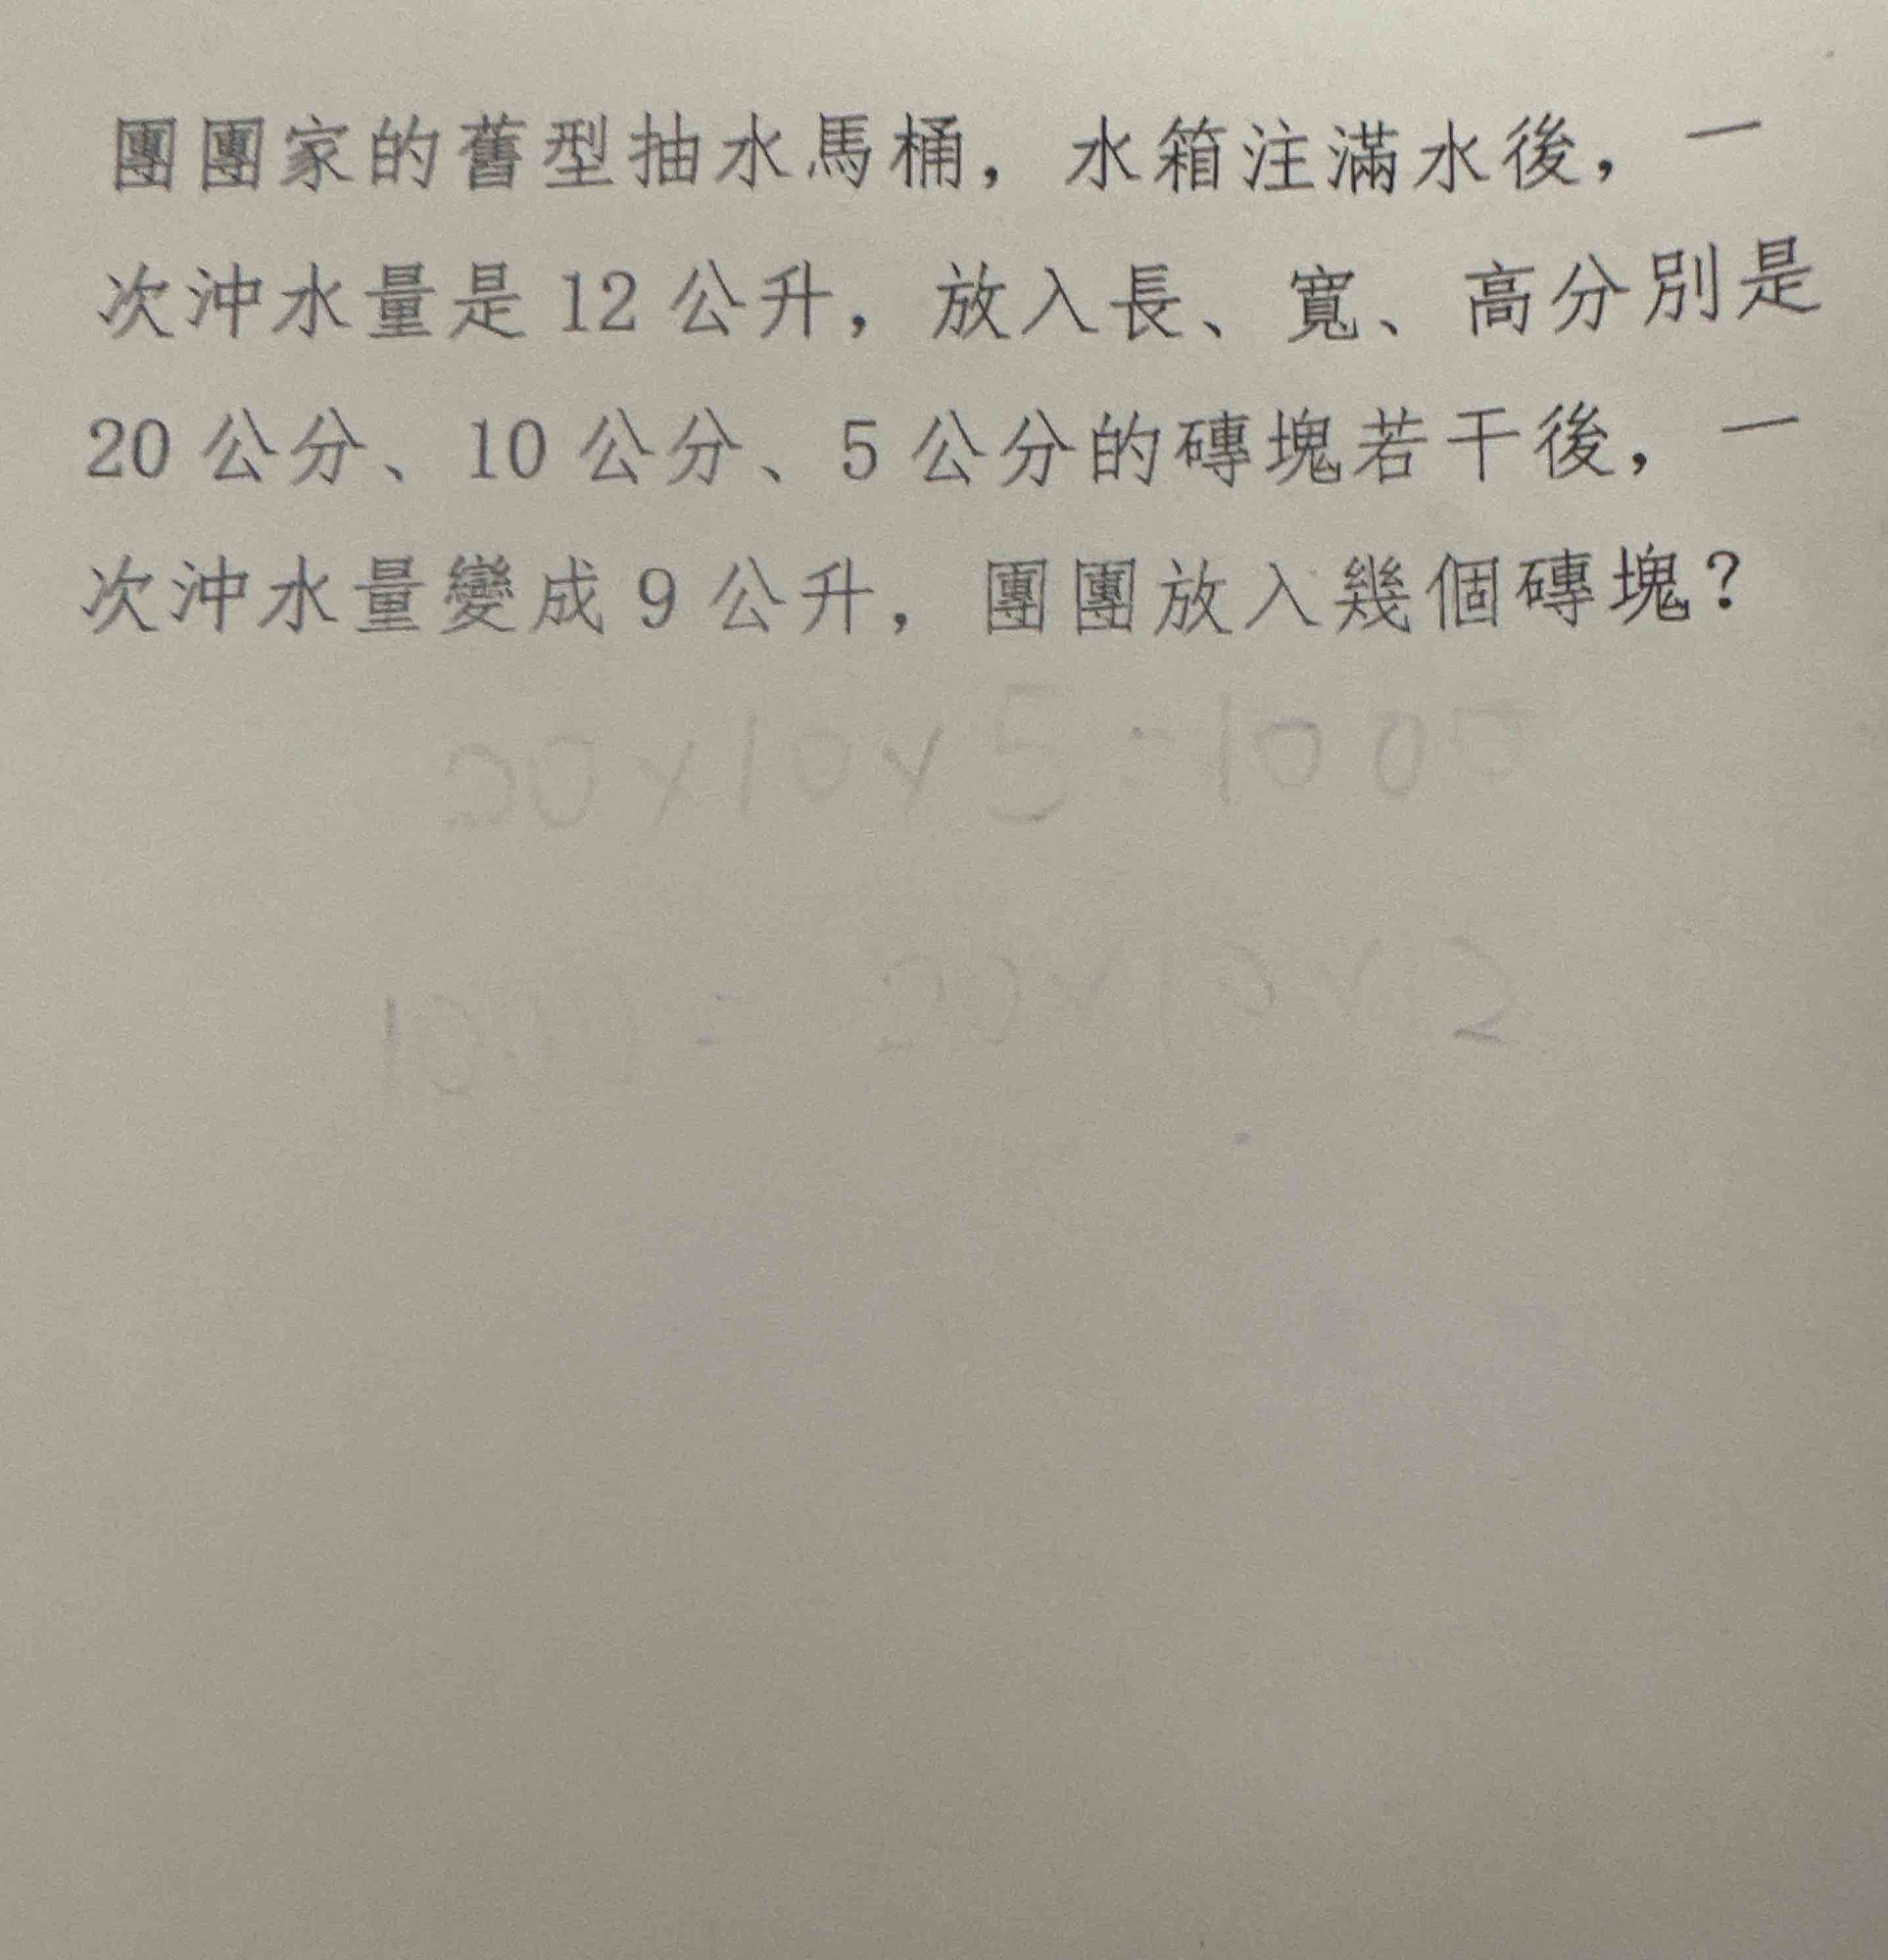 團團家的舊型抽水馬桶，水箱注滿水後，一
次沖水量是 12 公升，放入長、寬、高分別是
20 公分、10 公分、5 公分的磚塊若干後，一
次沖水量變成 9 公升，團團放入幾個磚塊？
20×10×5=1000